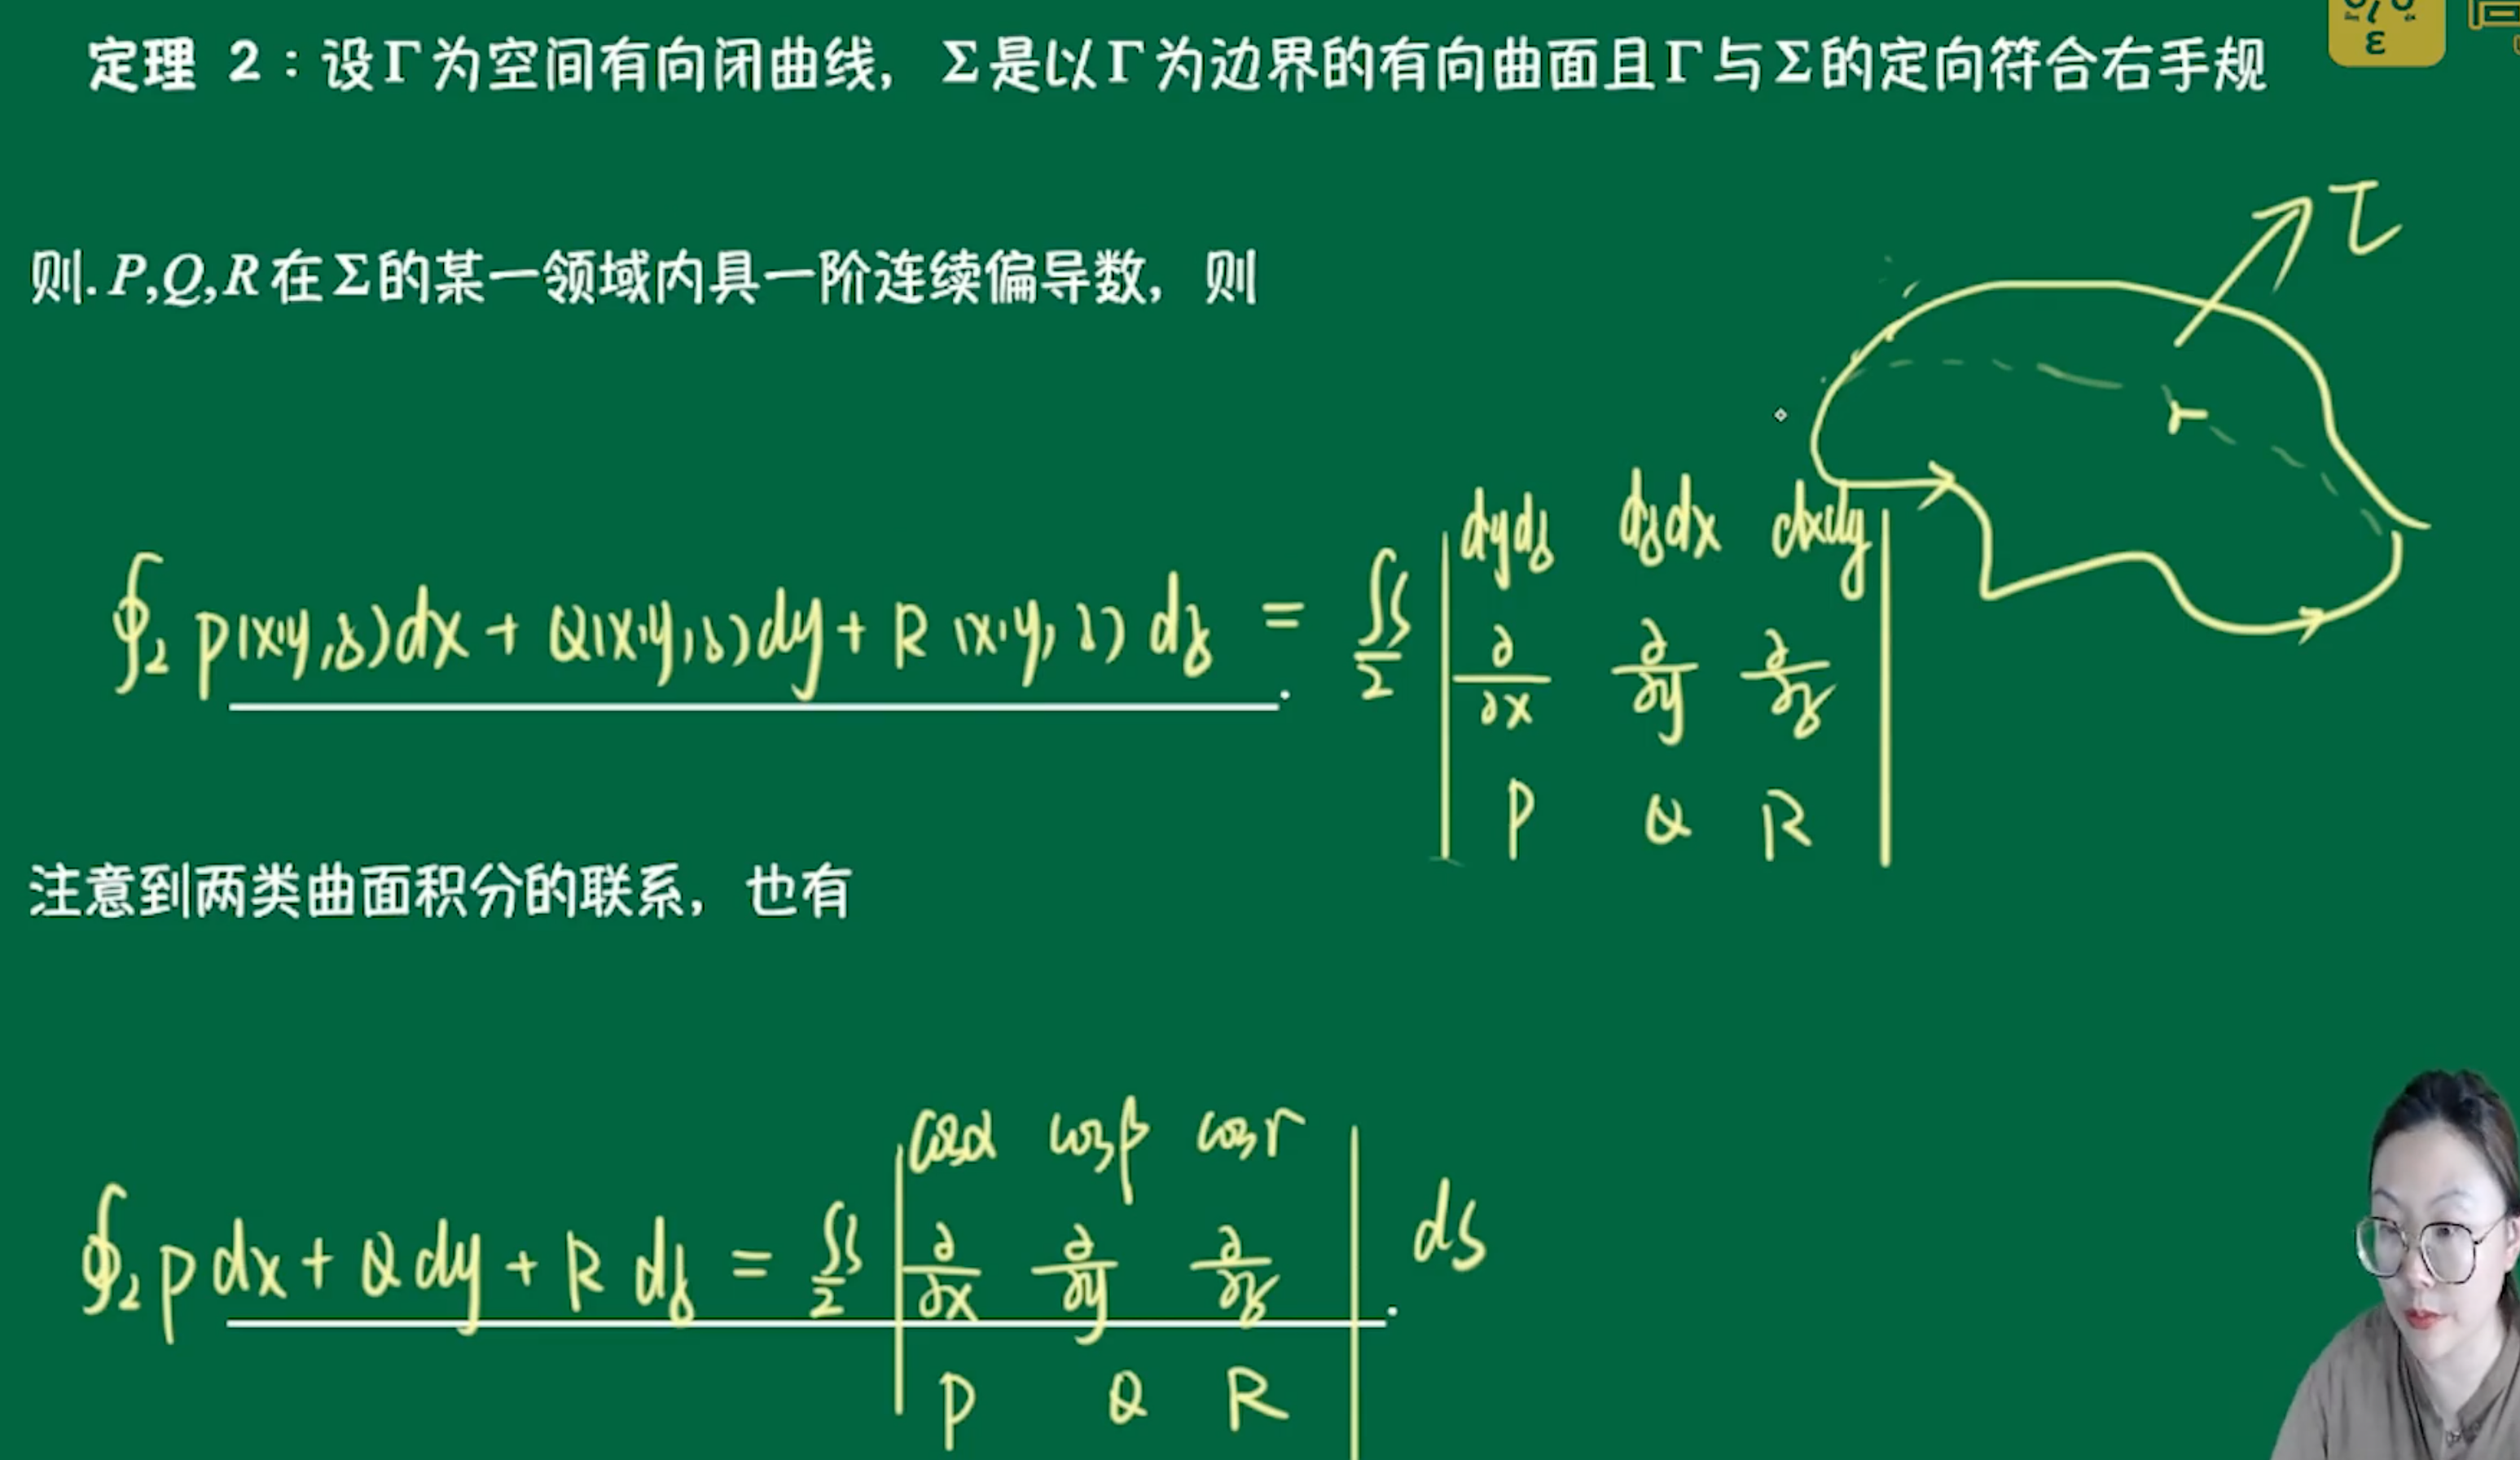 定理 2：设Γ为空间有向闭曲线，Σ是以Γ为边界的有向曲面且Γ与Σ的定向符合右手规
则.P,Q,R在Σ的某一领域内具一阶连续偏导数，则
τ
∮₂ P(x,y,z)dx + Q(x,y,z)dy + R(x,y,z)dz = ∬₂ | dydz dzdx dxdy |
∂/∂x ∂/∂y ∂/∂z
P Q R
注意到两类曲面积分的联系，也有
∮₂ Pdx + Qdy + Rdz = ∬₂ | cosα cosβ cosr | ds
∂/∂x ∂/∂y ∂/∂z
P Q R